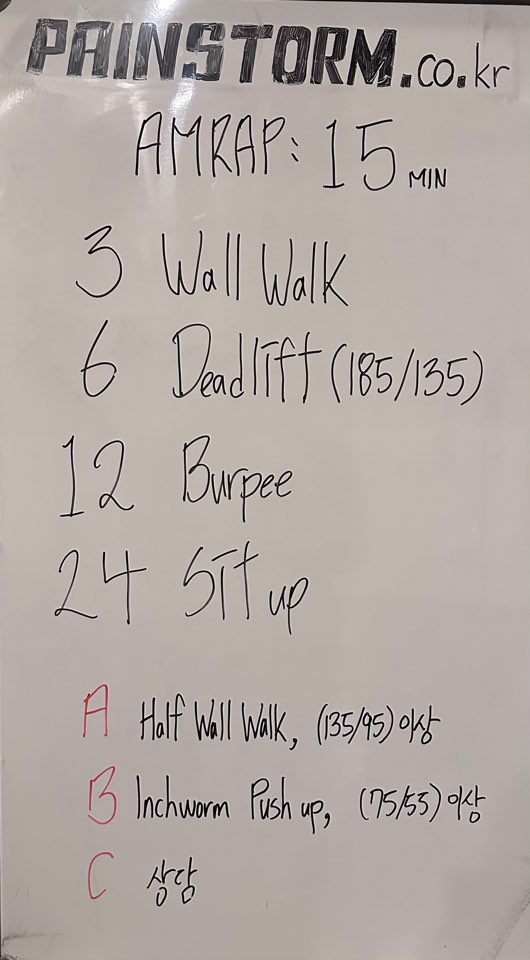 PAINSTORM.co.kr
AMRAP: 15 MIN
3 Wall Walk
6 Deadlift (185/135)
12 Burpee
24 Sit up
A Half Wall Walk, (135/95) 이상
B Inchworm Push up, (75/55) 이상
C 상담